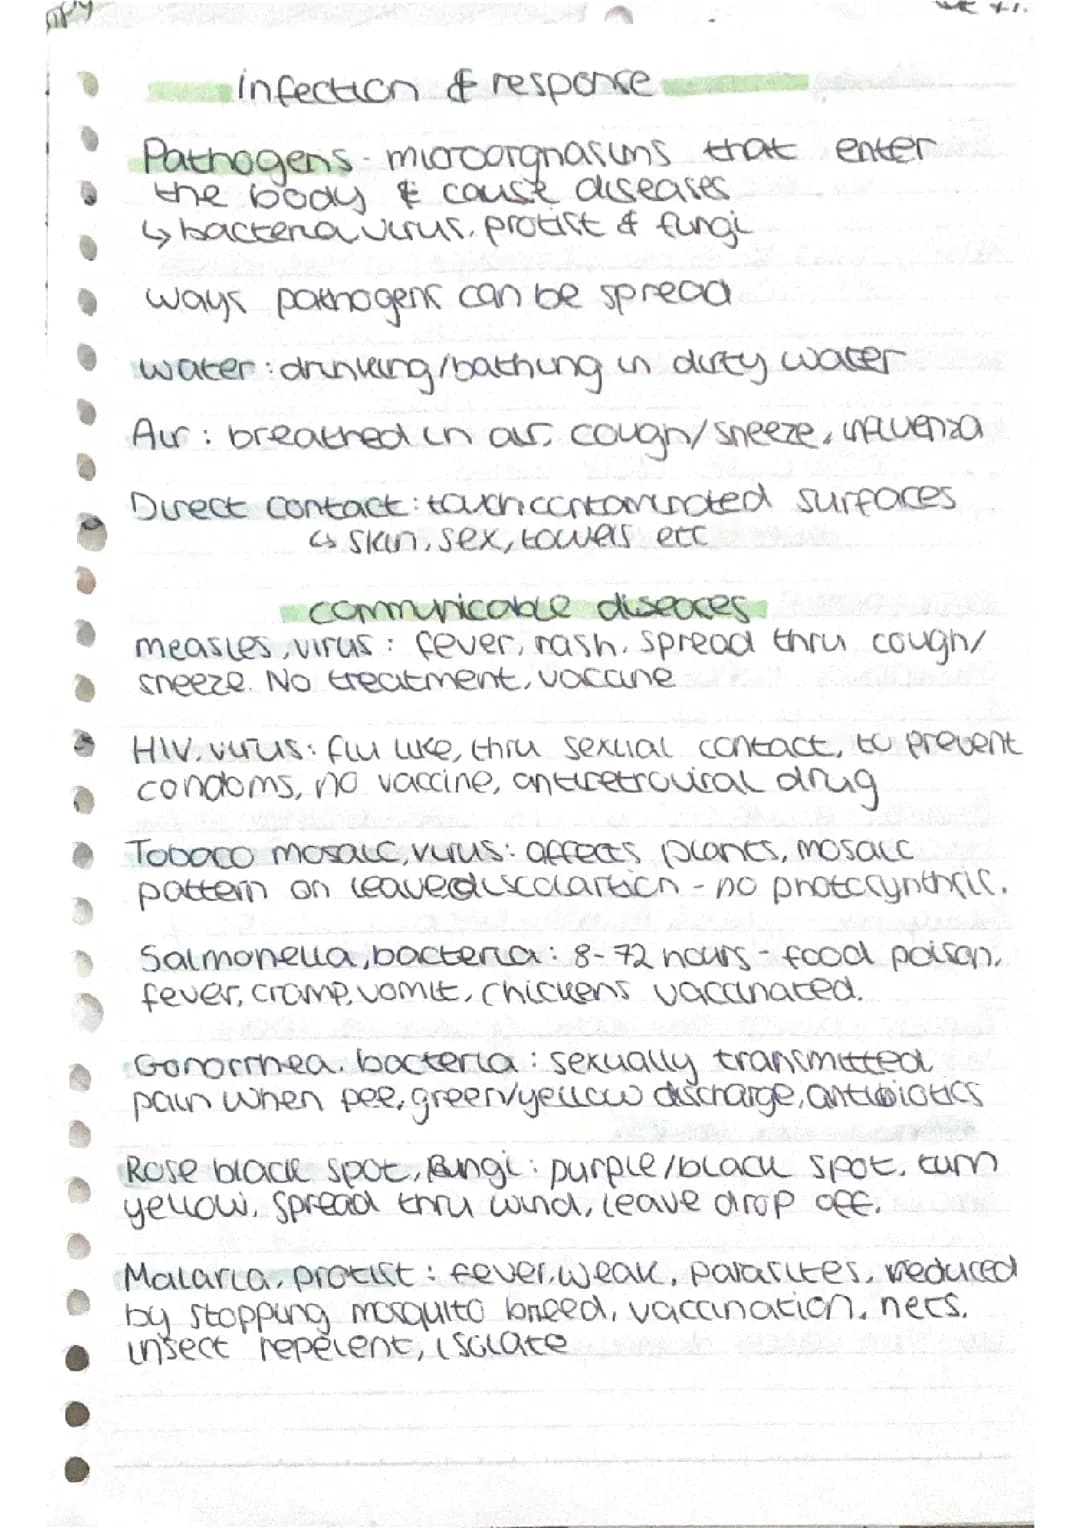 infection & response
Pathogens - microorgnasims that enter
the body & cause diseases
↳ bacteria, virus, protist & fungi
ways pathogens can be spread
water : drinking/bathing in dirty water
Air : breathed in air, cough/sneeze, influenza
Direct contact : touch contaminated surfaces
↳ skin, sex, towels etc
communicable diseases
measles, virus : fever, rash, spread thru cough/
sneeze. No treatment, vaccine
HIV, virus: flu like, thru sexual contact, to prevent
condoms, no vaccine, antiretroviral drug
Tobacco mosaic, virus: affects plants, mosaic
pattern on leave discolartion - no photosynthsis.
Salmonella, bacteria: 8-72 hours - food poison,
fever, cramp, vomit, chickens vaccinated.
Gonorrhea, bacteria : sexually transmitted
pain when pee, green/yellow discharge, antibiotics
Rose black spot, fungi: purple/black spot, turn
yellow, spread thru wind, leave drop off.
Malaria, protist : fever, weak, parasites, reduced
by stopping mosquito breed, vaccination, nets,
insect repelent, isolate